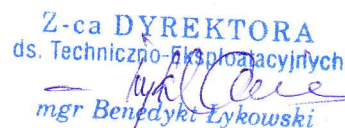 Z-ca DYREKTORA
ds. Techniczno-Eksploatacyjnych
mgr Benedykt Łykowski